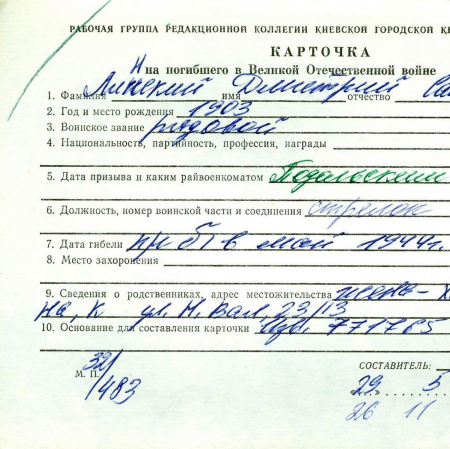 РАБОЧАЯ ГРУППА РЕДАКЦИОННОЙ КОЛЛЕГИИ КИЕВСКОЙ ГОРОДСКОЙ
КАРТОЧКА
на погибшего в Великой Отечественной войне
1. Фамилия имя Дмитрий отчество
2. Год и место рождения 1903
3. Воинское звание рядовой
4. Национальность, партийность, профессия, награды
5. Дата призыва и каким райвоенкоматом Подольским
6. Должность, номер воинской части и соединения стрелок
7. Дата гибели пр. б/в май 1944г.
8. Место захоронения
9. Сведения о родственниках, адрес местожительства жена-
ул. Н. Вал, 23/13
10. Основание для составления карточки Изв. 771765
32/483
М. П.
СОСТАВИТЕЛЬ:
"29" 5
26 11